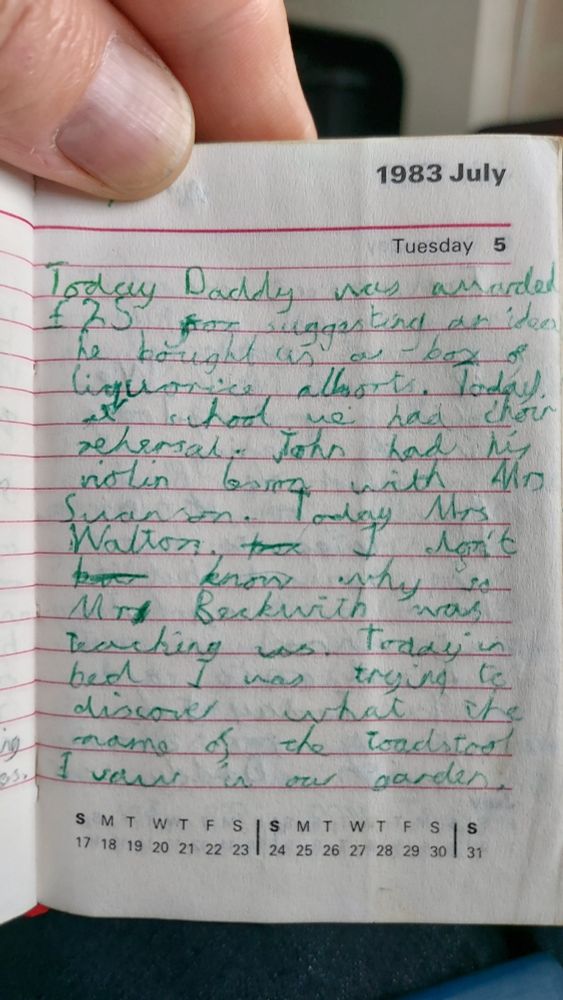 1983 July
Tuesday 5
Today Daddy was awarded
£25 for suggesting an idea
he bought us a box of
liquorice allsorts. Today
at school we had choir
rehersal. John had his
violin with Mrs
Swanson. Today Mrs
Walton. I don't
know why so
Mrs Beckwith was
teaching us. Today in
bed I was trying to
discover what the
name of the toadstool
I saw in our garden.
S M T W T F S S M T W T F S S
17 18 19 20 21 22 23 24 25 26 27 28 29 30 31